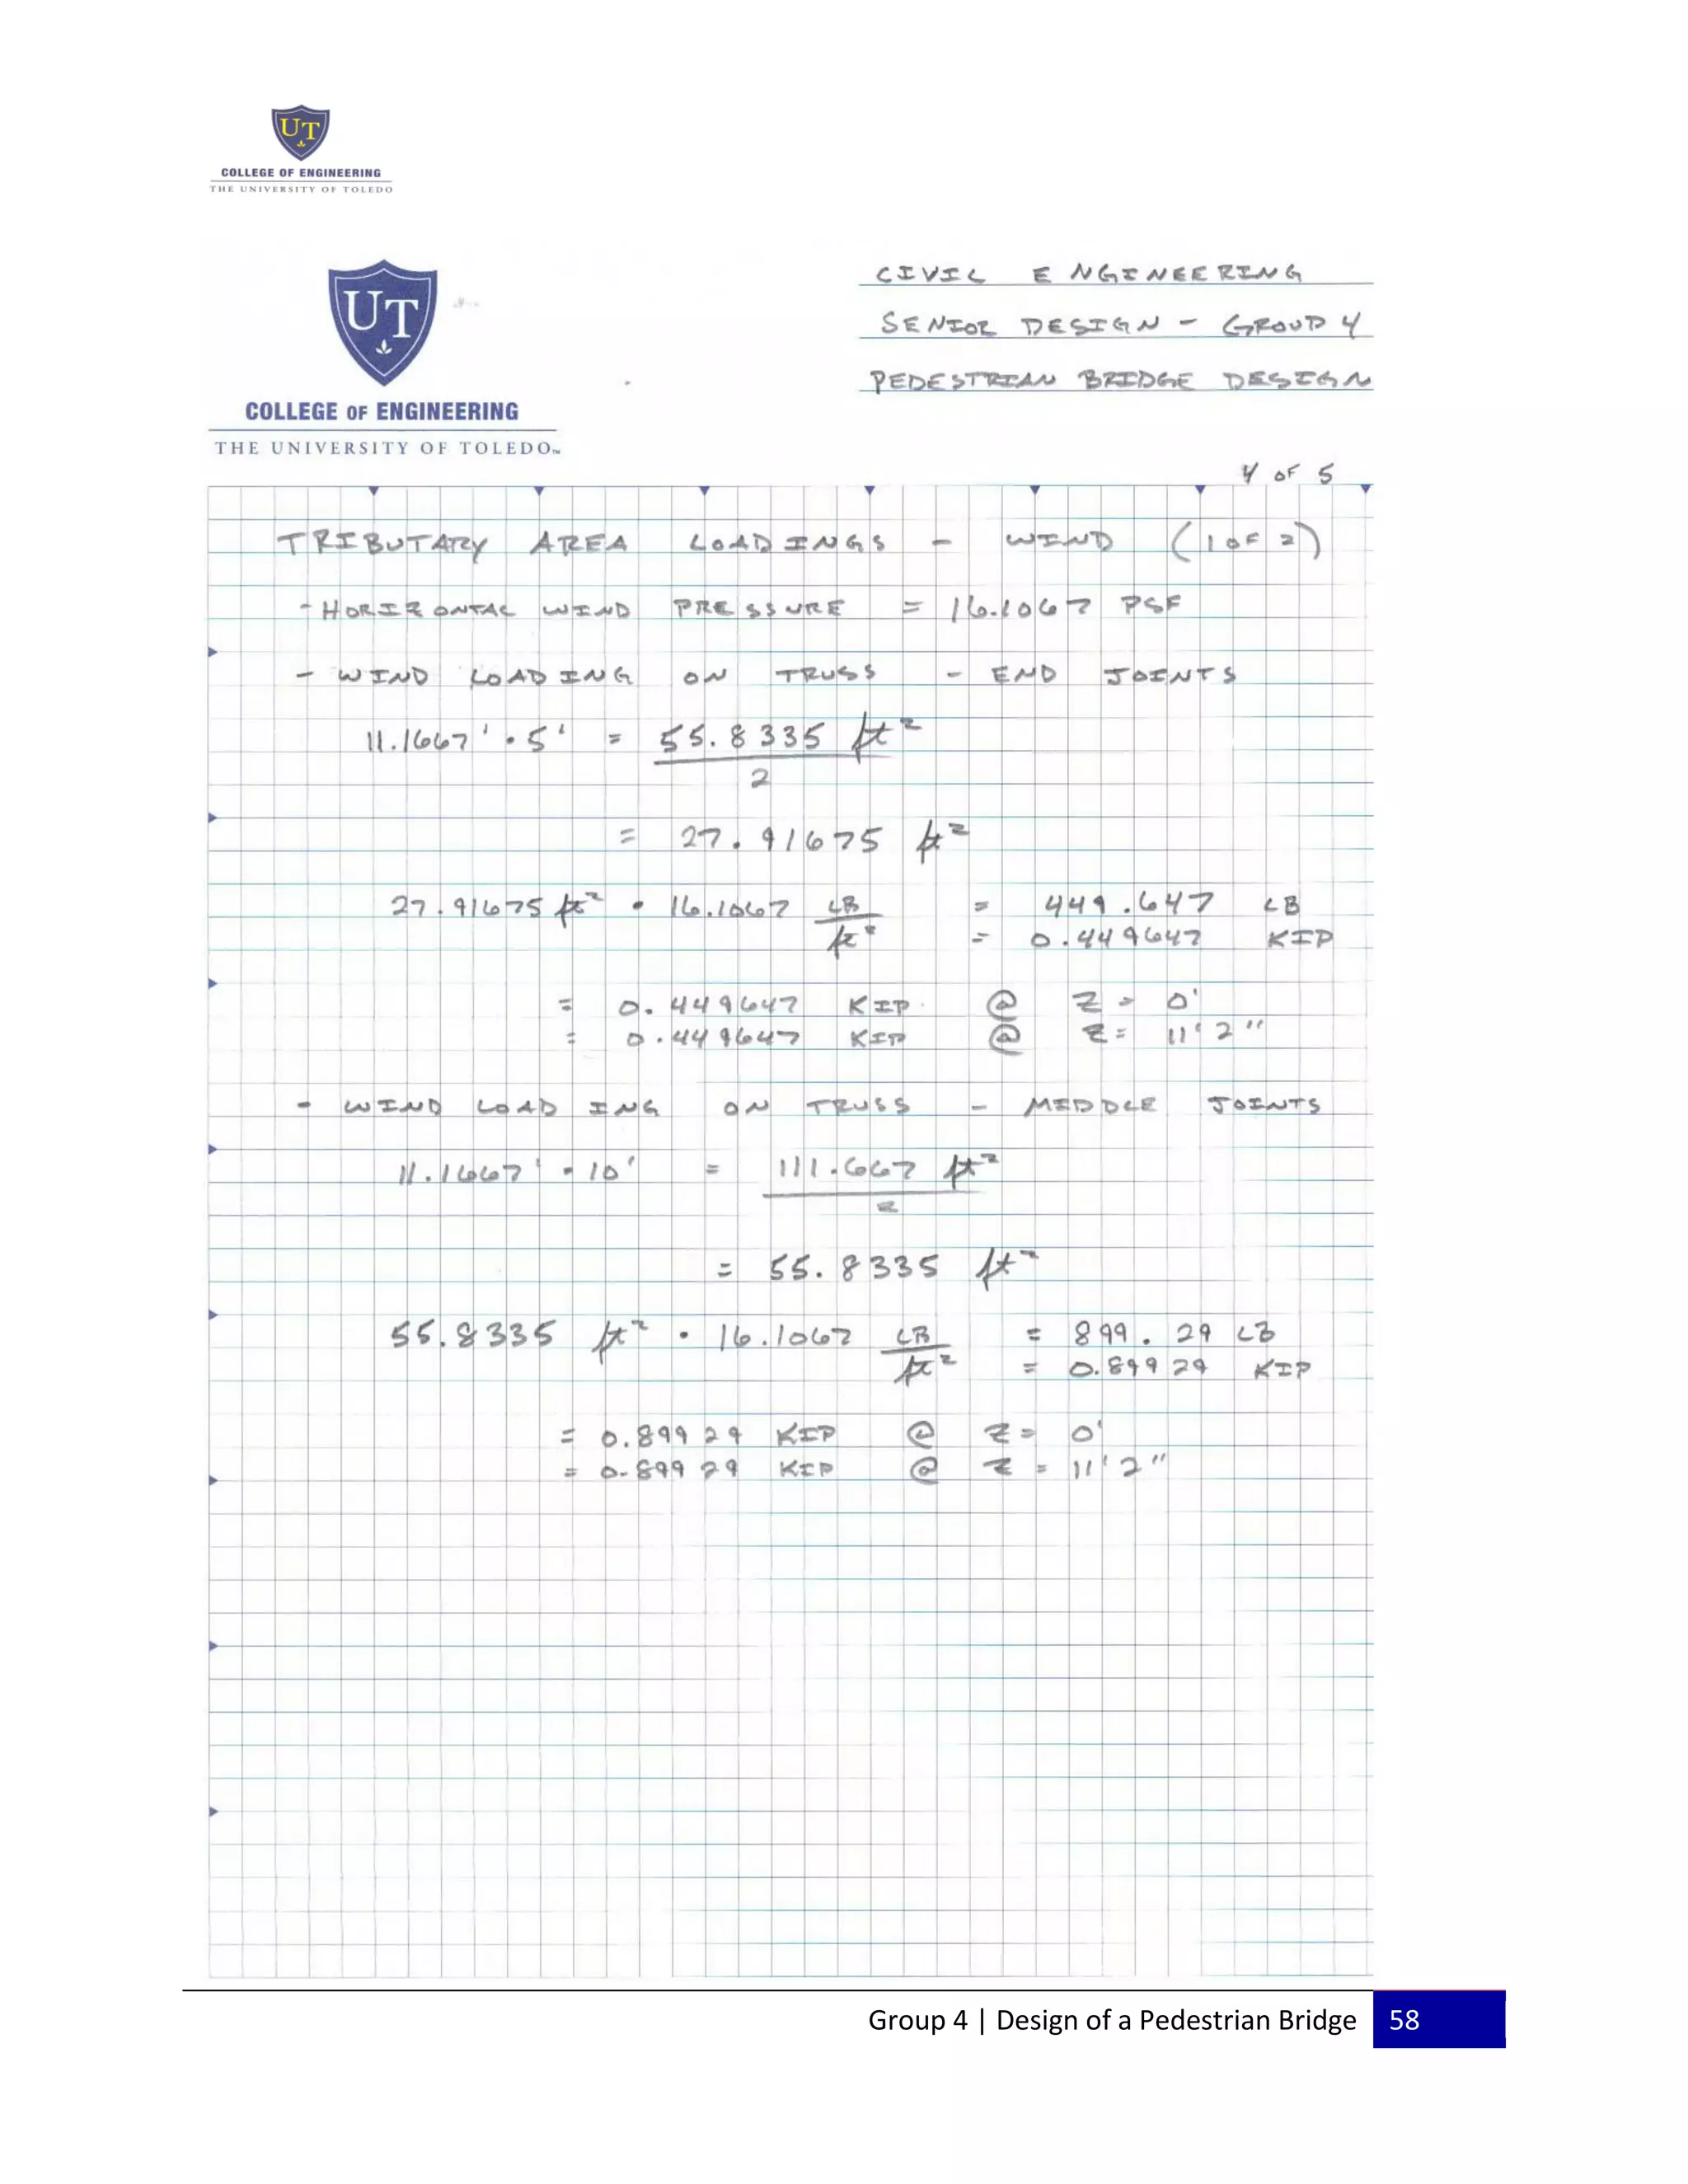 UT
COLLEGE OF ENGINEERING
THE UNIVERSITY OF TOLEDO
UT
COLLEGE OF ENGINEERING
THE UNIVERSITY OF TOLEDO™
CIVIL ENGINEERING
SENIOR DESIGN - GROUP 4
PEDESTRIAN BRIDGE DESIGN
4 OF 5
TRIBUTARY AREA LOADINGS - WIND (1 OF 2)
- HORIZONTAL WIND PRESSURE = 16.1067 PSF
- WIND LOADING ON TRUSS - END JOINTS
11.1667' • 5' = 55.8335 ft²
2
= 27.91675 ft²
27.91675 ft² • 16.1067 LB = 449.647 LB
ft² = 0.449647 KIP
= 0.449647 KIP @ Z = 0'
= 0.449647 KIP @ Z = 11'2"
- WIND LOADING ON TRUSS - MIDDLE JOINTS
11.1667' • 10' = 111.667 ft²
2
= 55.8335 ft²
55.8335 ft² • 16.1067 LB = 899.29 LB
ft² = 0.89929 KIP
= 0.89929 KIP @ Z = 0'
= 0.89929 KIP @ Z = 11'2"
Group 4 | Design of a Pedestrian Bridge 58